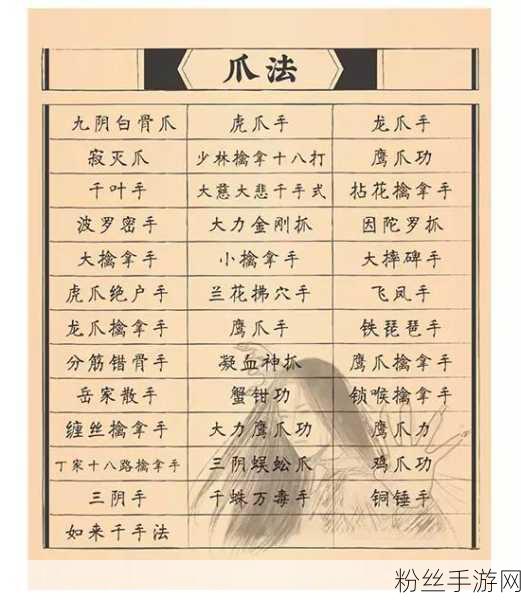 爪法
九阴白骨爪 虎爪手 龙爪手
寂灭爪 少林擒拿十八打 鹰爪功
千叶手 大慈大悲千手式 拈花擒拿手
波罗密手 大力金刚抓 因陀罗抓
大擒拿手 小擒拿手 大摔碑手
虎爪绝户手 兰花拂穴手 飞凤手
龙爪擒拿手 鹰爪手 铁琵琶手
分筋错骨手 凝血神抓 鹰爪擒拿手
岳家散手 蟹钳功 锁喉擒拿手
缠丝擒拿手 大力鹰爪功 鹰爪力
丁家十八路擒拿手 三阴蜈蚣爪 鸡爪功
三阴手 千蛛万毒手 铜锤手
如来千手法
粉丝手游网